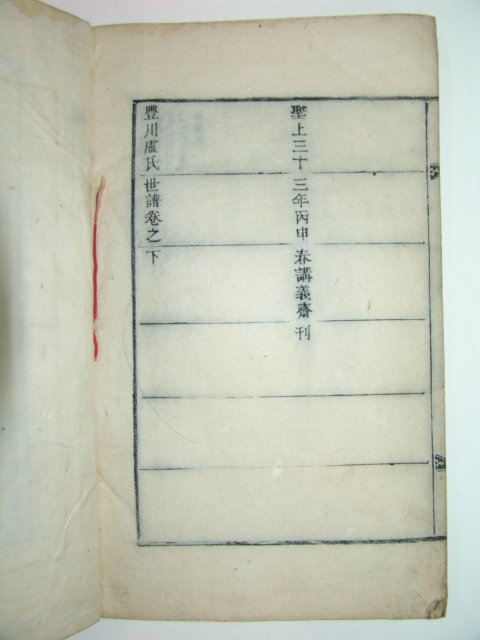 聖上三十三年丙申春講義齋刊
豊川盧氏世譜卷之下